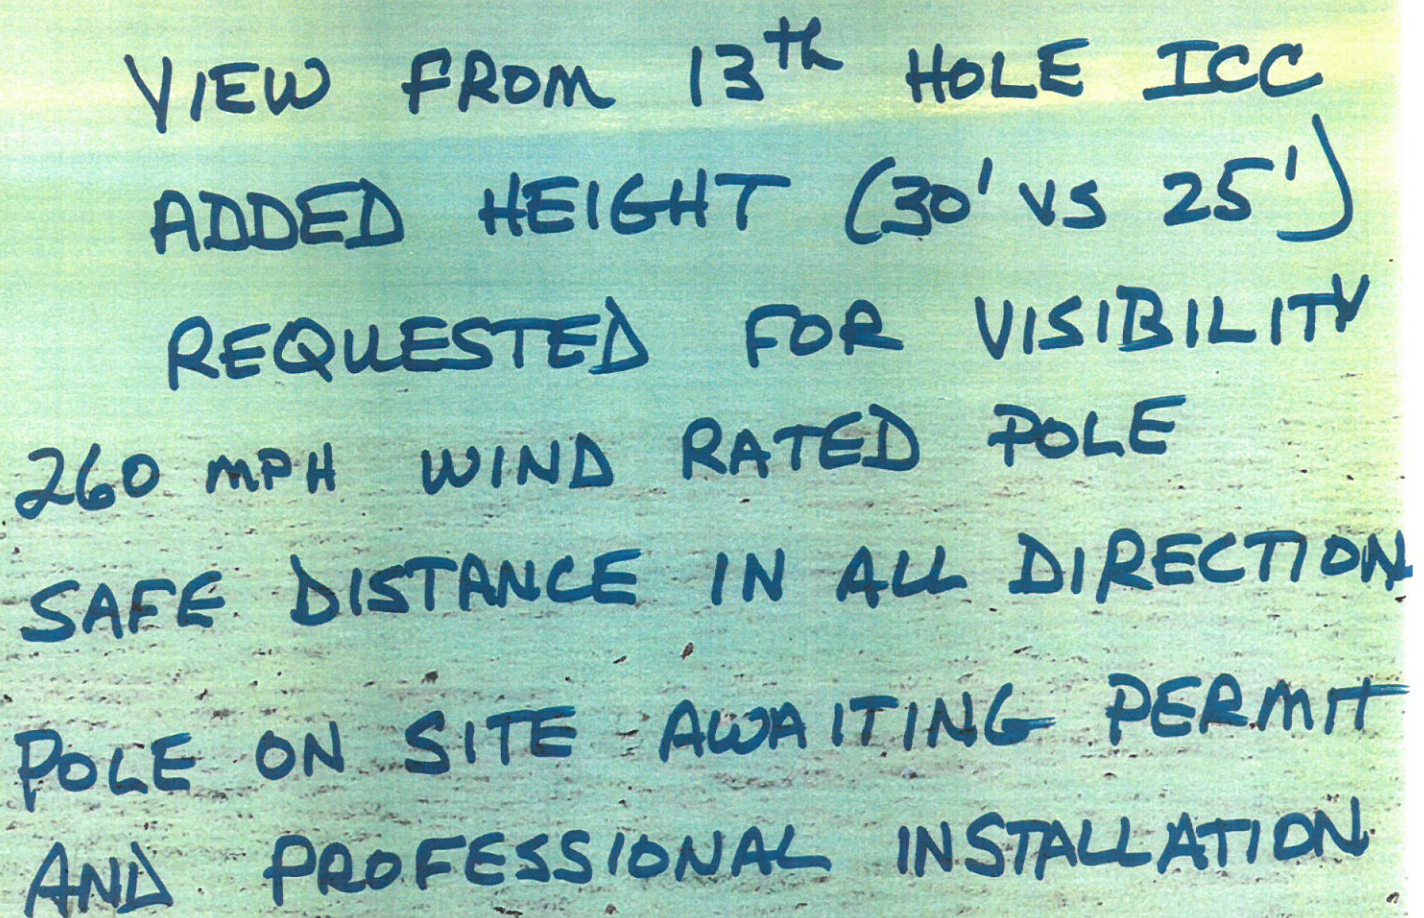 VIEW FROM 13th HOLE ICC
ADDED HEIGHT (30' VS 25')
REQUESTED FOR VISIBILITY
260 MPH WIND RATED POLE
SAFE DISTANCE IN ALL DIRECTION
POLE ON SITE AWAITING PERMIT
AND PROFESSIONAL INSTALLATION